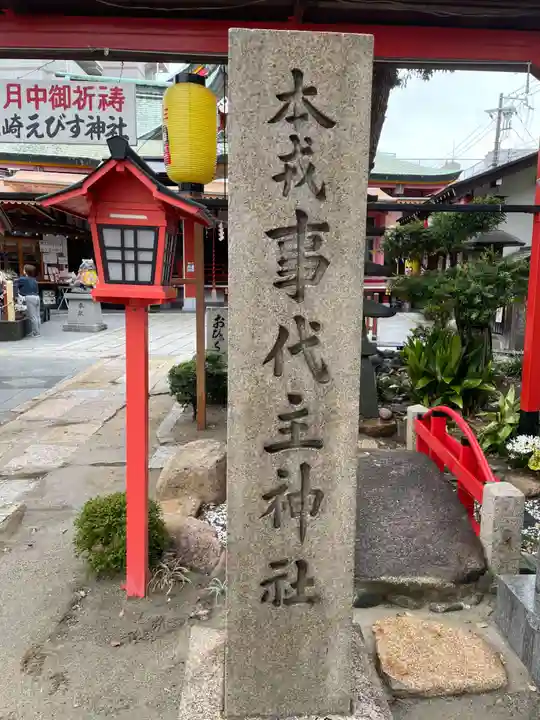 月中御祈祷
崎えびす神社
本戎事代主神社
おびら